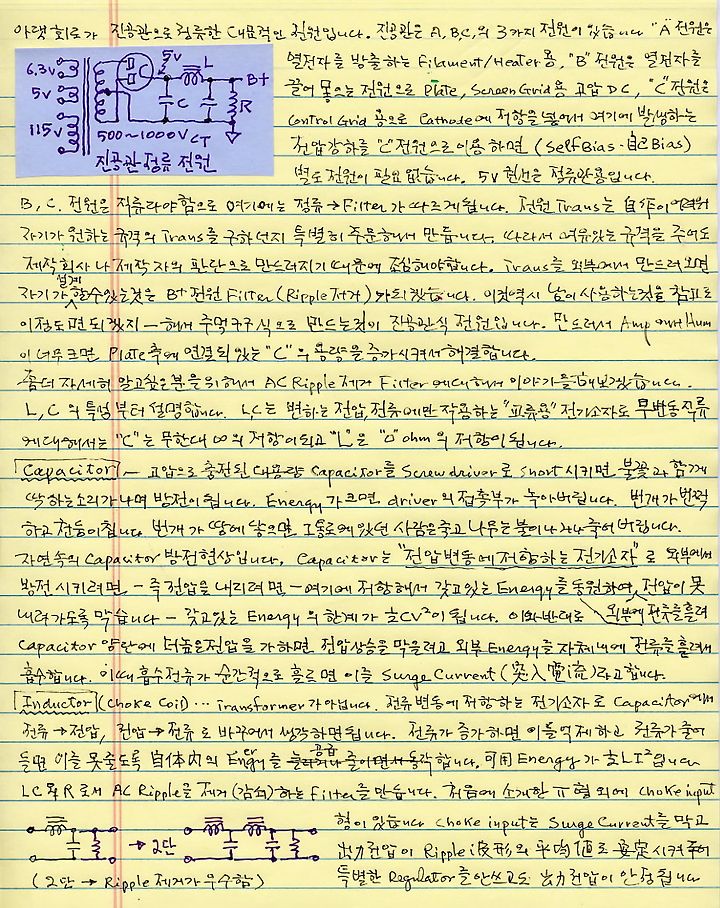 아랫 회로가 진공관으로 정류한 대표적인 전원입니다. 진공관은 A, B, C,의 3가지 전원이 있습니다 "A"전원은
열전자를 방출하는 Filament/Heater용, "B"전원은 열전자를
끌어 모으는 전원으로 Plate, Screen Grid용 고압 DC, "C"전원은
Control Grid 용으로 Cathode에 저항을 넣어서 여기에 발생하는
전압강하를 "C"전원으로 이용하면 (Self Bias - 自己Bias)
별도 전원이 필요없습니다. 5V 권선은 정류관용입니다.
6.3V
5V
115V
5V
L
B+
C
R
500~1000V CT
진공관정류 전원
B, C. 전원은 직류라야함으로 여기에는 정류→Filter가 따르게됩니다. 전원 Trans는 自作이
자기가 원하는 규격의 Trans를 구하던지 특별히 주문해서 만듭니다. 따라서 여유있는 규격을 주어도
제작회사나 제작자의 판단으로 만드러지기 때문에 조심해야합니다. Trans를 외부에서 만드러오면
자기가 설계할수있는것은 B+ 전원 Filter (Ripple 제거)가되겠습니다. 이것역시 남이 사용하는것을 참고로
이정도면 되겠지 — 해서 주먹구구식으로 만드는것이 진공관식 전원입니다. 만드러서 Amp에서 Hum
이 너무크면 Plate측에 연결되있는 "C"의 용량을 증가시켜서 해결합니다.
좀더 자세히 알고싶은분을 위해서 AC Ripple 제거 Filter에대해서 이야기를해보겠습니다.
L, C의 특성부터 설명합니다. LC는 변하는 전압, 전류에만 작용하는 "교류용" 전기소자로 무변동직류
에대해서는 "C"는 무한대 ∞의 저항이되고 "L"은 "0" ohm의 저항이됩니다.
Capacitor — 고압으로 충전된 대용량 Capacitor를 Screw driver로 Short시키면 불꽃과 함께
딱하는소리가나며 방전이됩니다. Energy가크면 driver의 접촉부가 녹아버립니다. 번개가 번쩍
하고 천둥이칩니다. 번개가 땅에 닿으면 그통로에있던 사람은죽고 나무는 불이나고 죽어버립니다.
자연속의 Capacitor 방전현상입니다. Capacitor는 "전압변동에저항하는 전기소자"로 외부에서
방전시키려면 - 즉 전압을 내리려면 - 여기에 저항해서 갖고있는 Energy를 동원하여 외부에 전류를흘려 전압이 못
내려가도록 막습니다 - 갖고있는 Energy의 한계가 ½CV²이됩니다. 이와반대로
Capacitor 양단에 더높은전압을 가하면 전압상승을 막을려고 외부 Energy를 자체내에 전류를흘려서
흡수합니다. 이때 흡수전류가 순간적으로 흐르면 이를 Surge Current (突入電流)라고합니다.
Inductor (Choke Coil) … Transformer가 아닙니다. 전류변동에 저항하는 전기소자로 Capacitor에서
전류→전압, 전압→전류로 바꾸어서 생각하면됩니다. 전류가 증가하면 이를억제하고 전류가줄어
들면 이를 못줄도록 自体内의 Energy를 공급 동작합니다. 可用 Energy가 ½LI²입니다
LC와 R로서 AC Ripple을 제거(감쇠)하는 Filter를 만듭니다. 처음에 소개한 π형외에 Choke input
형이 있습니다 Choke input는 Surge Current를 막고
出力전압이 Ripple波形의 平均値로 安定시켜주어
특별한 Regulator를안쓰고도 出力전압이 안정됩니다
→ 2단
(2단 → Ripple 제거가우수함)